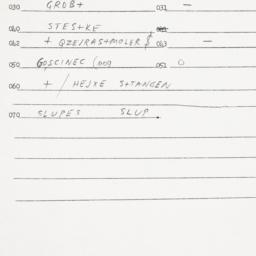 030 GROB+ 031 –
040 STES+KE
042 + QZEIRAS+MOLER 063 –
050 GOSCINEC (009 051 0
060 + / HEJXE S+TANGEN
070 SLUPES SLUP.